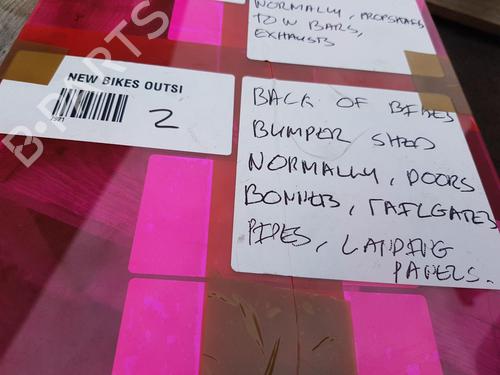 NORMALLY, PROPSHAFTS
TOW BARS,
EXHAUSTS
NEW BIKES OUTSI
2
BACK OF BIKES
BUMPER SHED
NORMALLY, DOORS
BONNETS, TAILGATES
PIPES, LANDING
PANELS.
B-PARTS